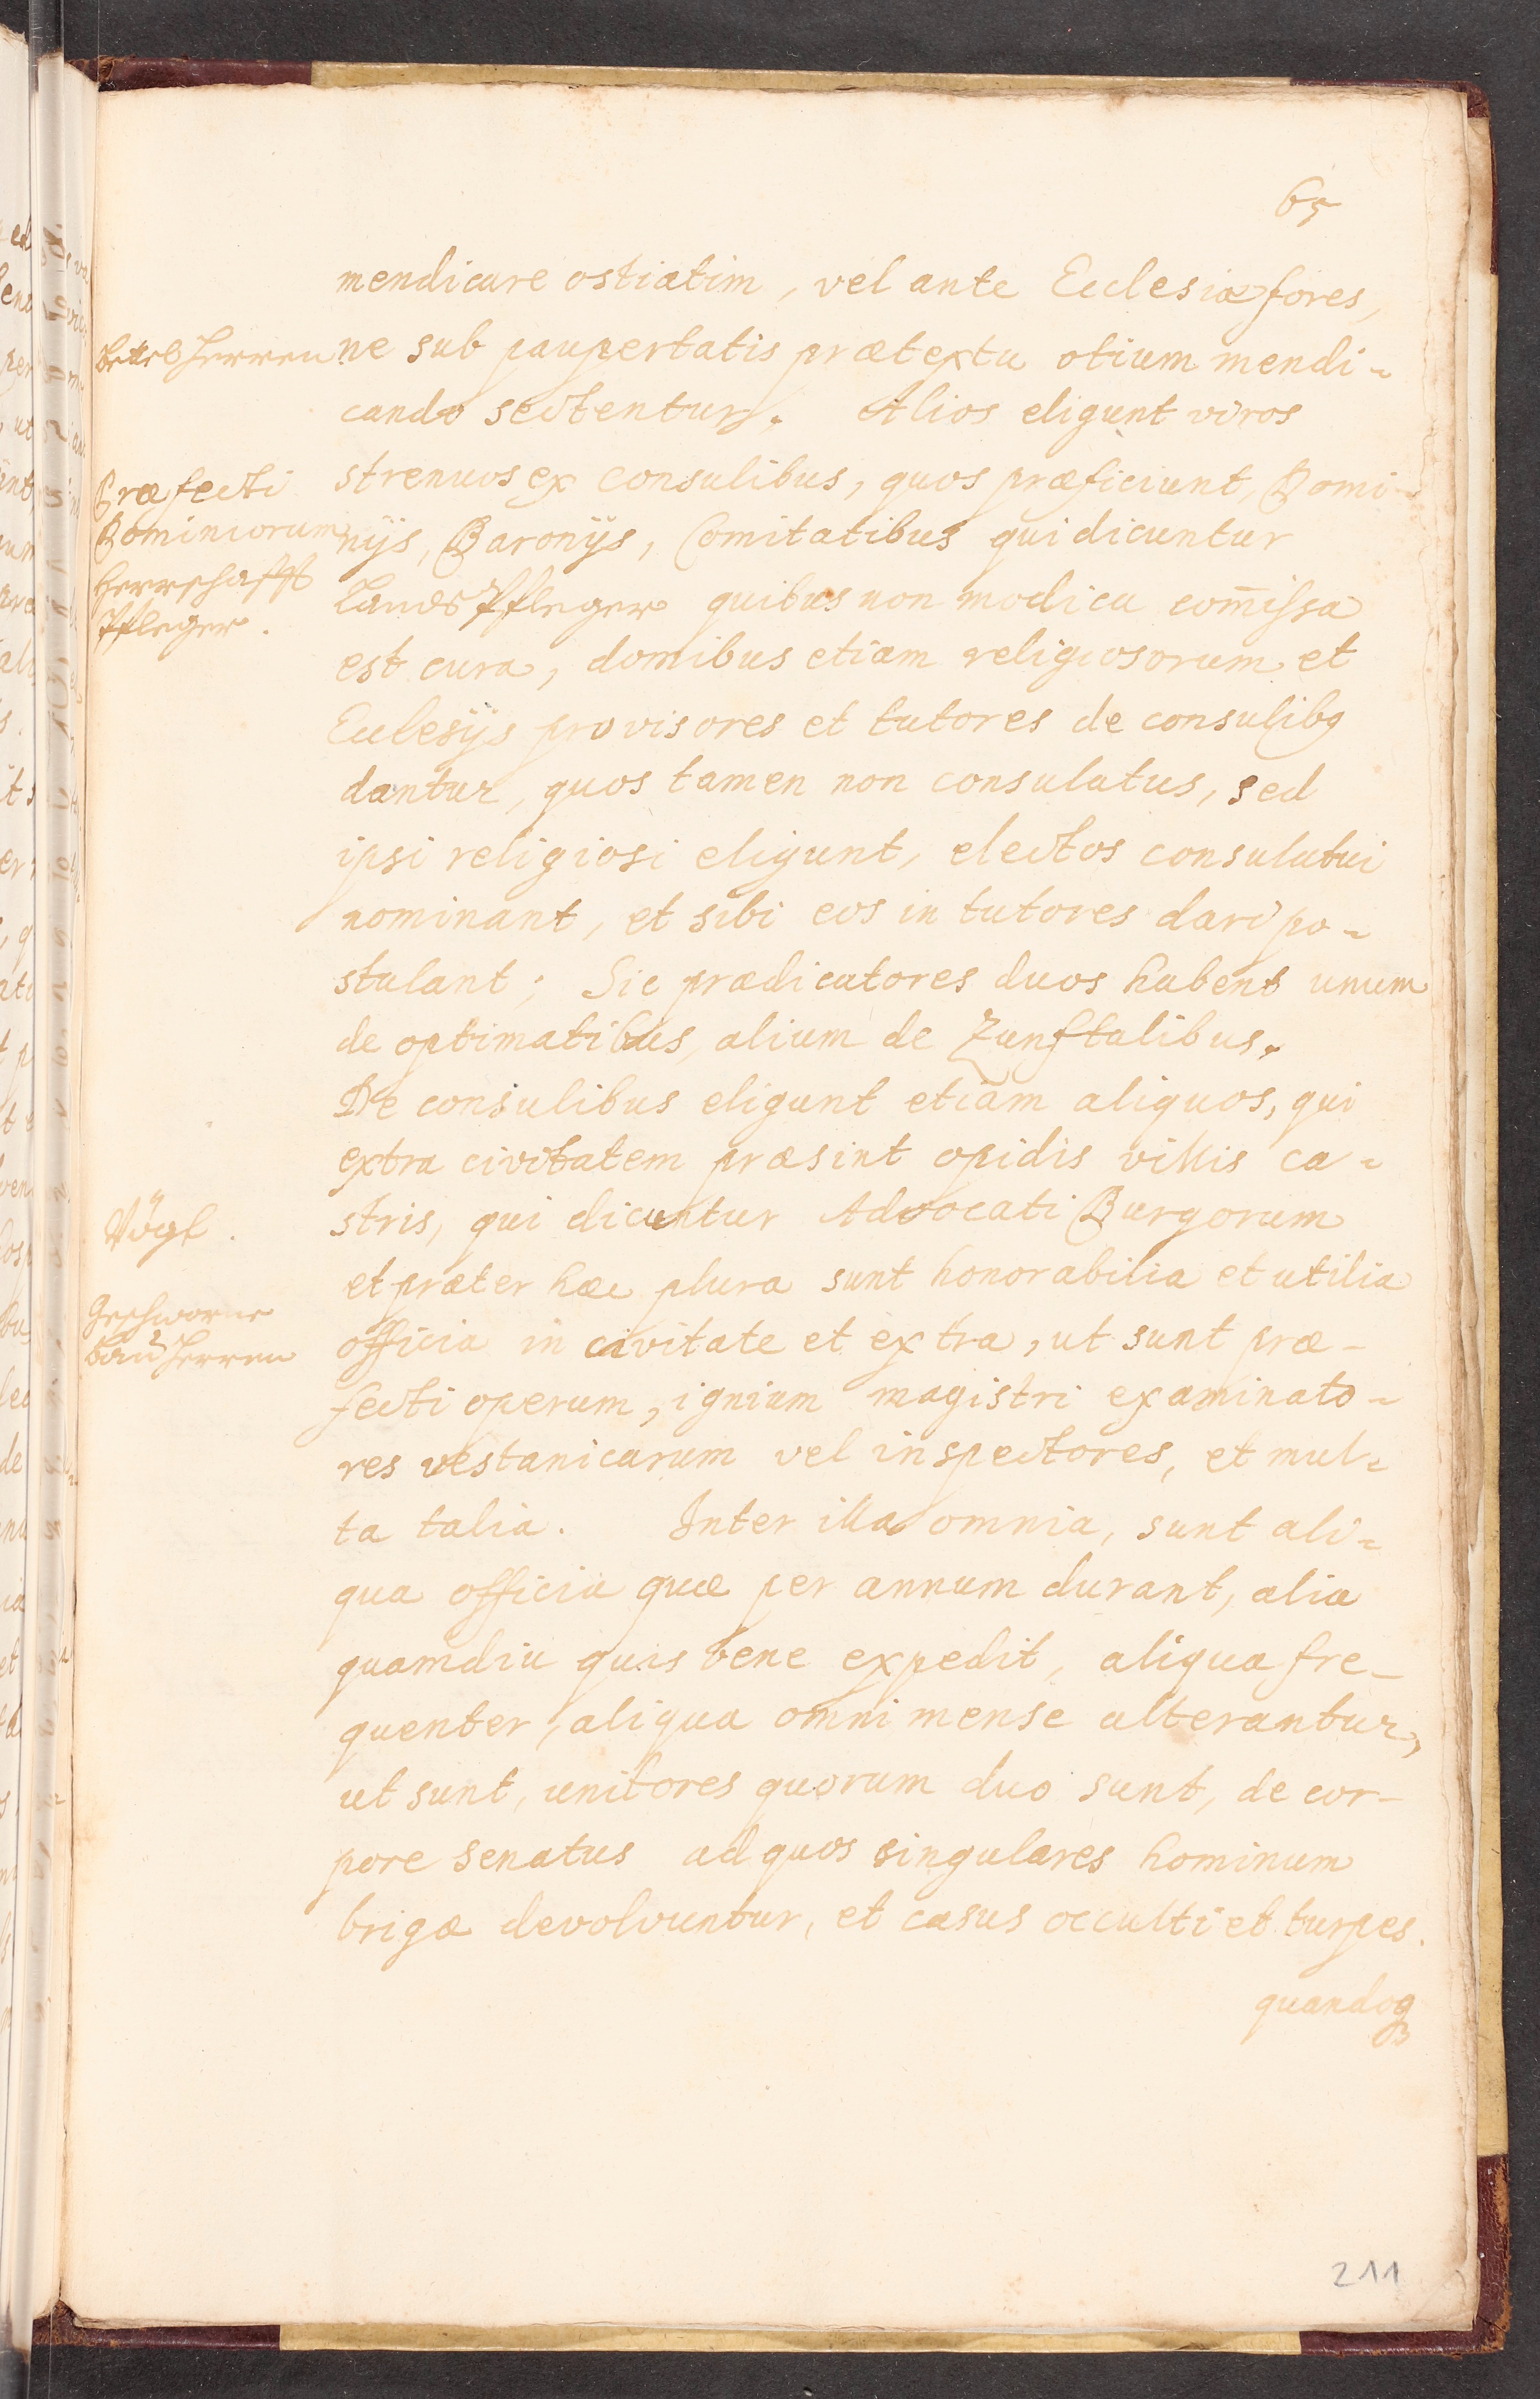 65
mendicare ostiatim, vel ante Ecclesiæ fores,
Bettel Herren
ne sub paupertatis prætextu otium mendi-
cando sectentur. Alios eligunt viros
Præfecti
strenuos ex consulibus, quos præficiunt, Domi-
Dominiorum
nijs, Baronijs, Comitatibus qui dicuntur
Herrschafft
Pfleger.
Lands Pfleger quibus non modica com̄issa
est cura, domibus etiam religiosorum et
Eclesijs provisores et tutores de consulibq
dantur, quos tamen non consulatus, sed
ipsi religiosi eligunt, electos consulatui
nominant, et sibi eos in tutores dari po-
stulant; Sic prædicatores duos habent unum
de optimatibus, alium de Zunftalibus.
De consulibus eligunt etiam aliquos, qui
extra civitatem præsint opidis villis ca-
Vögt.
stris, qui dicuntur Advocati Burgorum
et præter hæc plura sunt honorabilia et utilia
Geschworne
Bau Herren
officia in civitate et extra, ut sunt præ-
fecti operum, ignium magistri examinato-
res vestanicarum vel inspectores, et mul-
ta talia. Inter illa omnia, sunt ali-
qua officia quæ per annum durant, alia
quamdiu quis bene expedit, aliqua fre-
quenter, aliqua omni mense alterantur,
ut sunt, unitores quorum duo sunt, de cor-
pore senatus ad quos singulares hominum
brigæ devolvuntur, et casus occulti et turpes.
quandoq
211